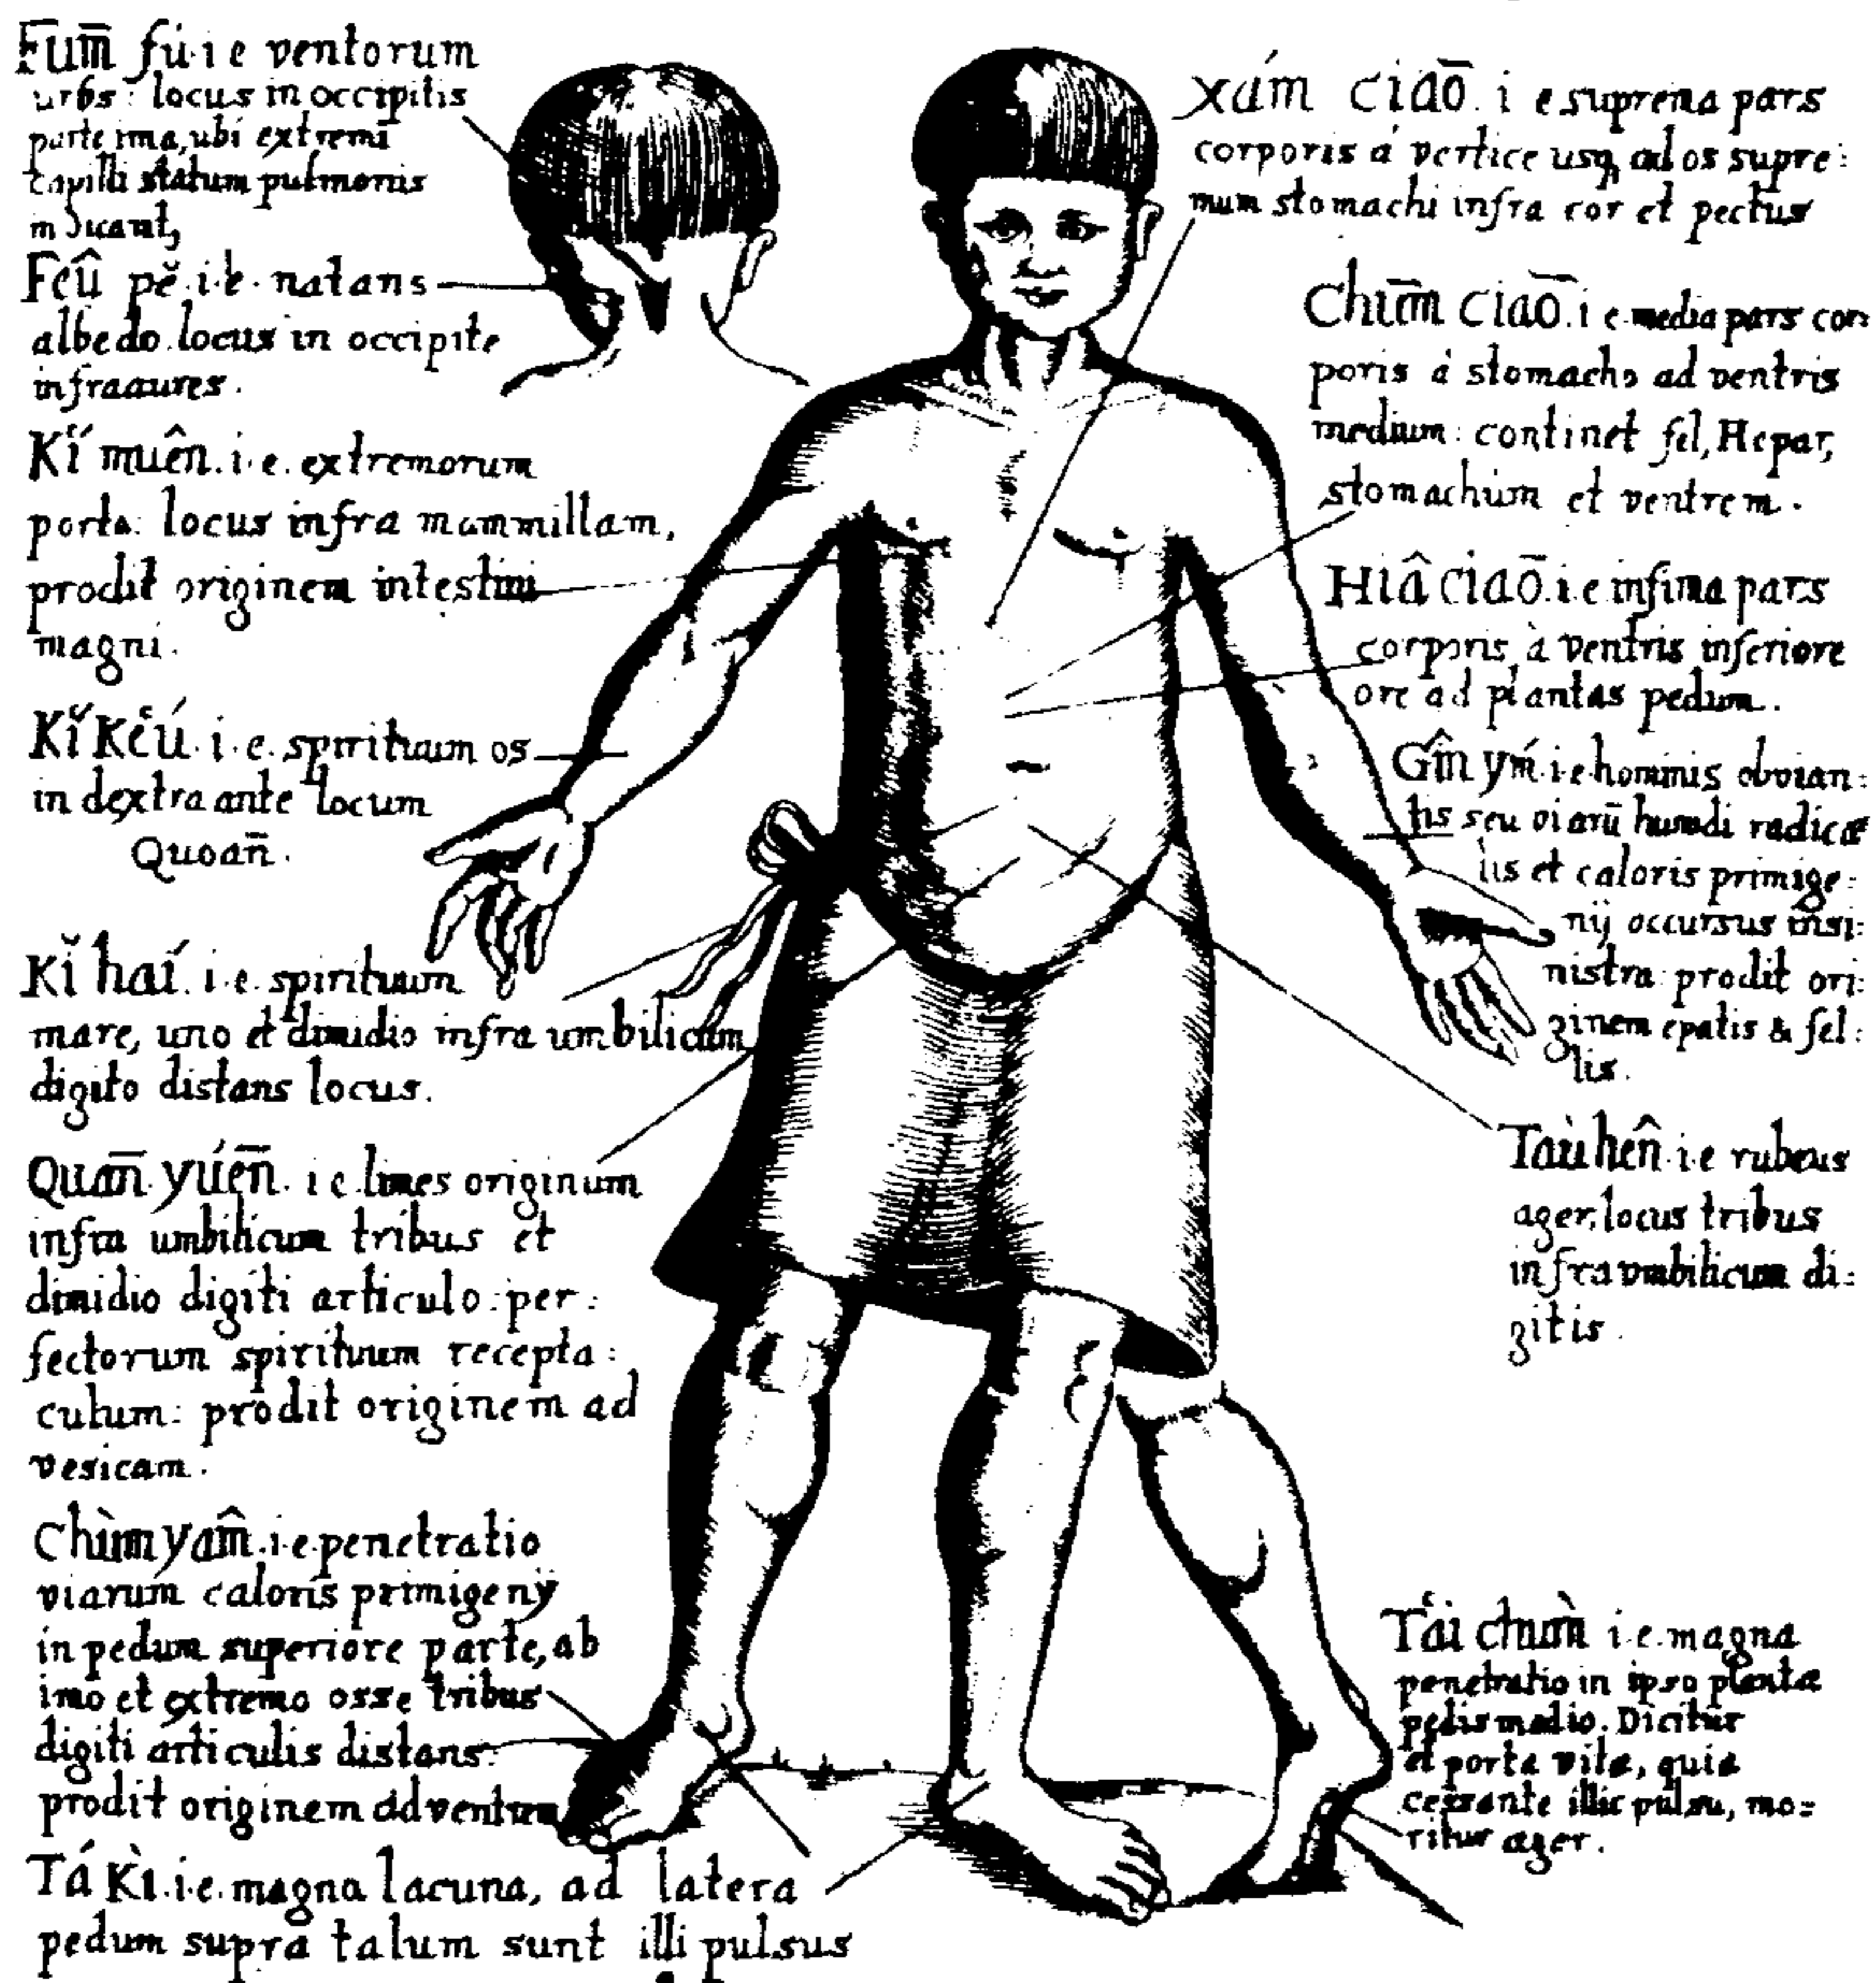 Fum̄ fú·i e ventorum
urbs: locus in occipitis
parte ima, ubi extremi
capilli statum pulmonis
indicant,
Feû pĕ i·e· natans
albedo locus in occipite
infra aures.
Kĭ muên. i. e. extremorum
porta: locus infra mammillam,
prodit originem intestini
magni.
Kĭ Keú. i. e. spirituum os
in dextra ante locum
Quoan̄.
Kĭ haí. i. e. spirituum
mare, uno et dimidio infra umbilicum
digito distans locus.
Quan̄ yúen̄. i e limes originum
infra umbilicum tribus et
dimidio digiti articulo: per:
fectorum spirituum recepta:
culum: prodit originem ad
vesicam.
Chùm yam̂. i e penetratio
viarum caloris primigenÿ
in pedum superiore parte, ab
imo et extremo osse tribus
digiti articulis distans:
prodit originem ad ventrem
Tá Kì. i. e. magna lacuna, ad latera
pedum supra talum sunt illi pulsus
xám ciaō. i e suprema pars
corporis á vertice usq ad os supre:
mum stomachi infra cor et pectus
Chūm ciaō. i e media pars cor:
poris à stomacho ad ventris
medium: continet fel, Hepar,
stomachum et ventrem.
Hiâ ciaō. i e infima pars
corporis à ventris inferiore
ore ad plantas pedum.
Gîn ym. i e hominis obvian:
tis seu viarū humidi radica
lis et caloris primige:
nij occursus in si:
nistra: prodit ori:
ginem epatis & fel:
lis.
Taù hen̂ i. e rubeus
ager, locus tribus
infra umbilicum di:
gitis.
Tái chùm i. e. magna
penetratio in ipso plantæ
pedis medio. Dicitur
et porta vitæ, quia
cessante illic pulsu, mo=
ritur æger.